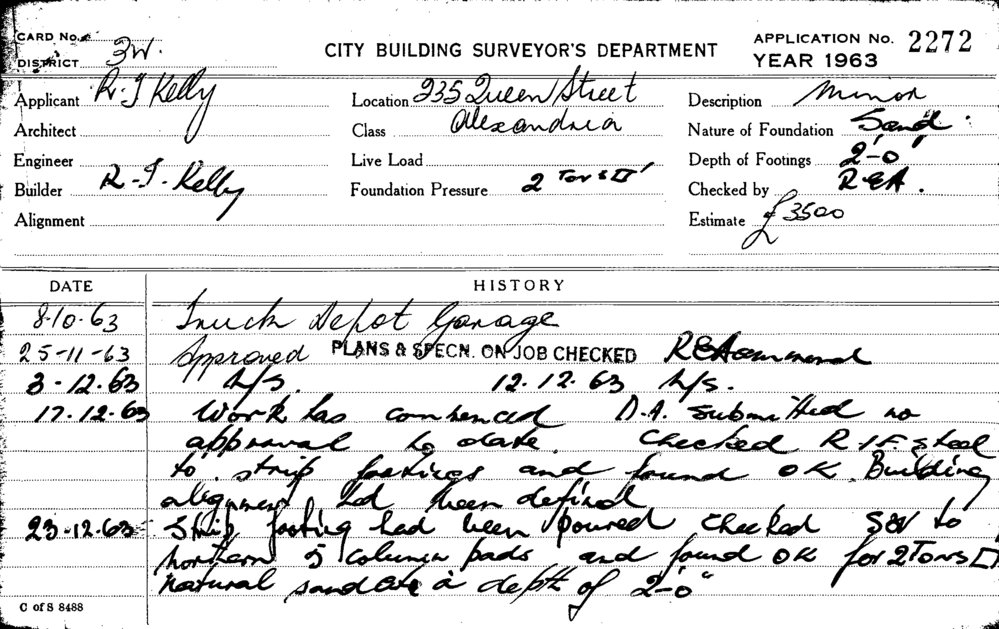 CARD No.
DISTRICT 3W.
CITY BUILDING SURVEYOR'S DEPARTMENT
APPLICATION No. 2272
YEAR 1963
Applicant R. J Kelly
Location 235 Queen Street
Description Minor
Architect
Class Alexandria
Nature of Foundation Sand.
Engineer
Live Load
Depth of Footings 2'-0"
Builder R. J. Kelly
Foundation Pressure 2 Tons □'
Checked by REH.
Alignment
Estimate £3500
DATE HISTORY
8-10-63 Truck Depot Garage
25-11-63 Approved PLANS & SPECN. ON JOB CHECKED REHammond
3-12-63 h/s. 12.12.63 h/s.
17.12.63 Work has commenced D.A. submitted no
approval to date. Checked R/F steel
to strip footings and found OK. Building
alignment had been defined
23-12-63 Strip footing had been poured checked to
northern 5 column pads and found OK for 2 Tons □'
natural sand at a depth of 2'-0"
C of S 8488